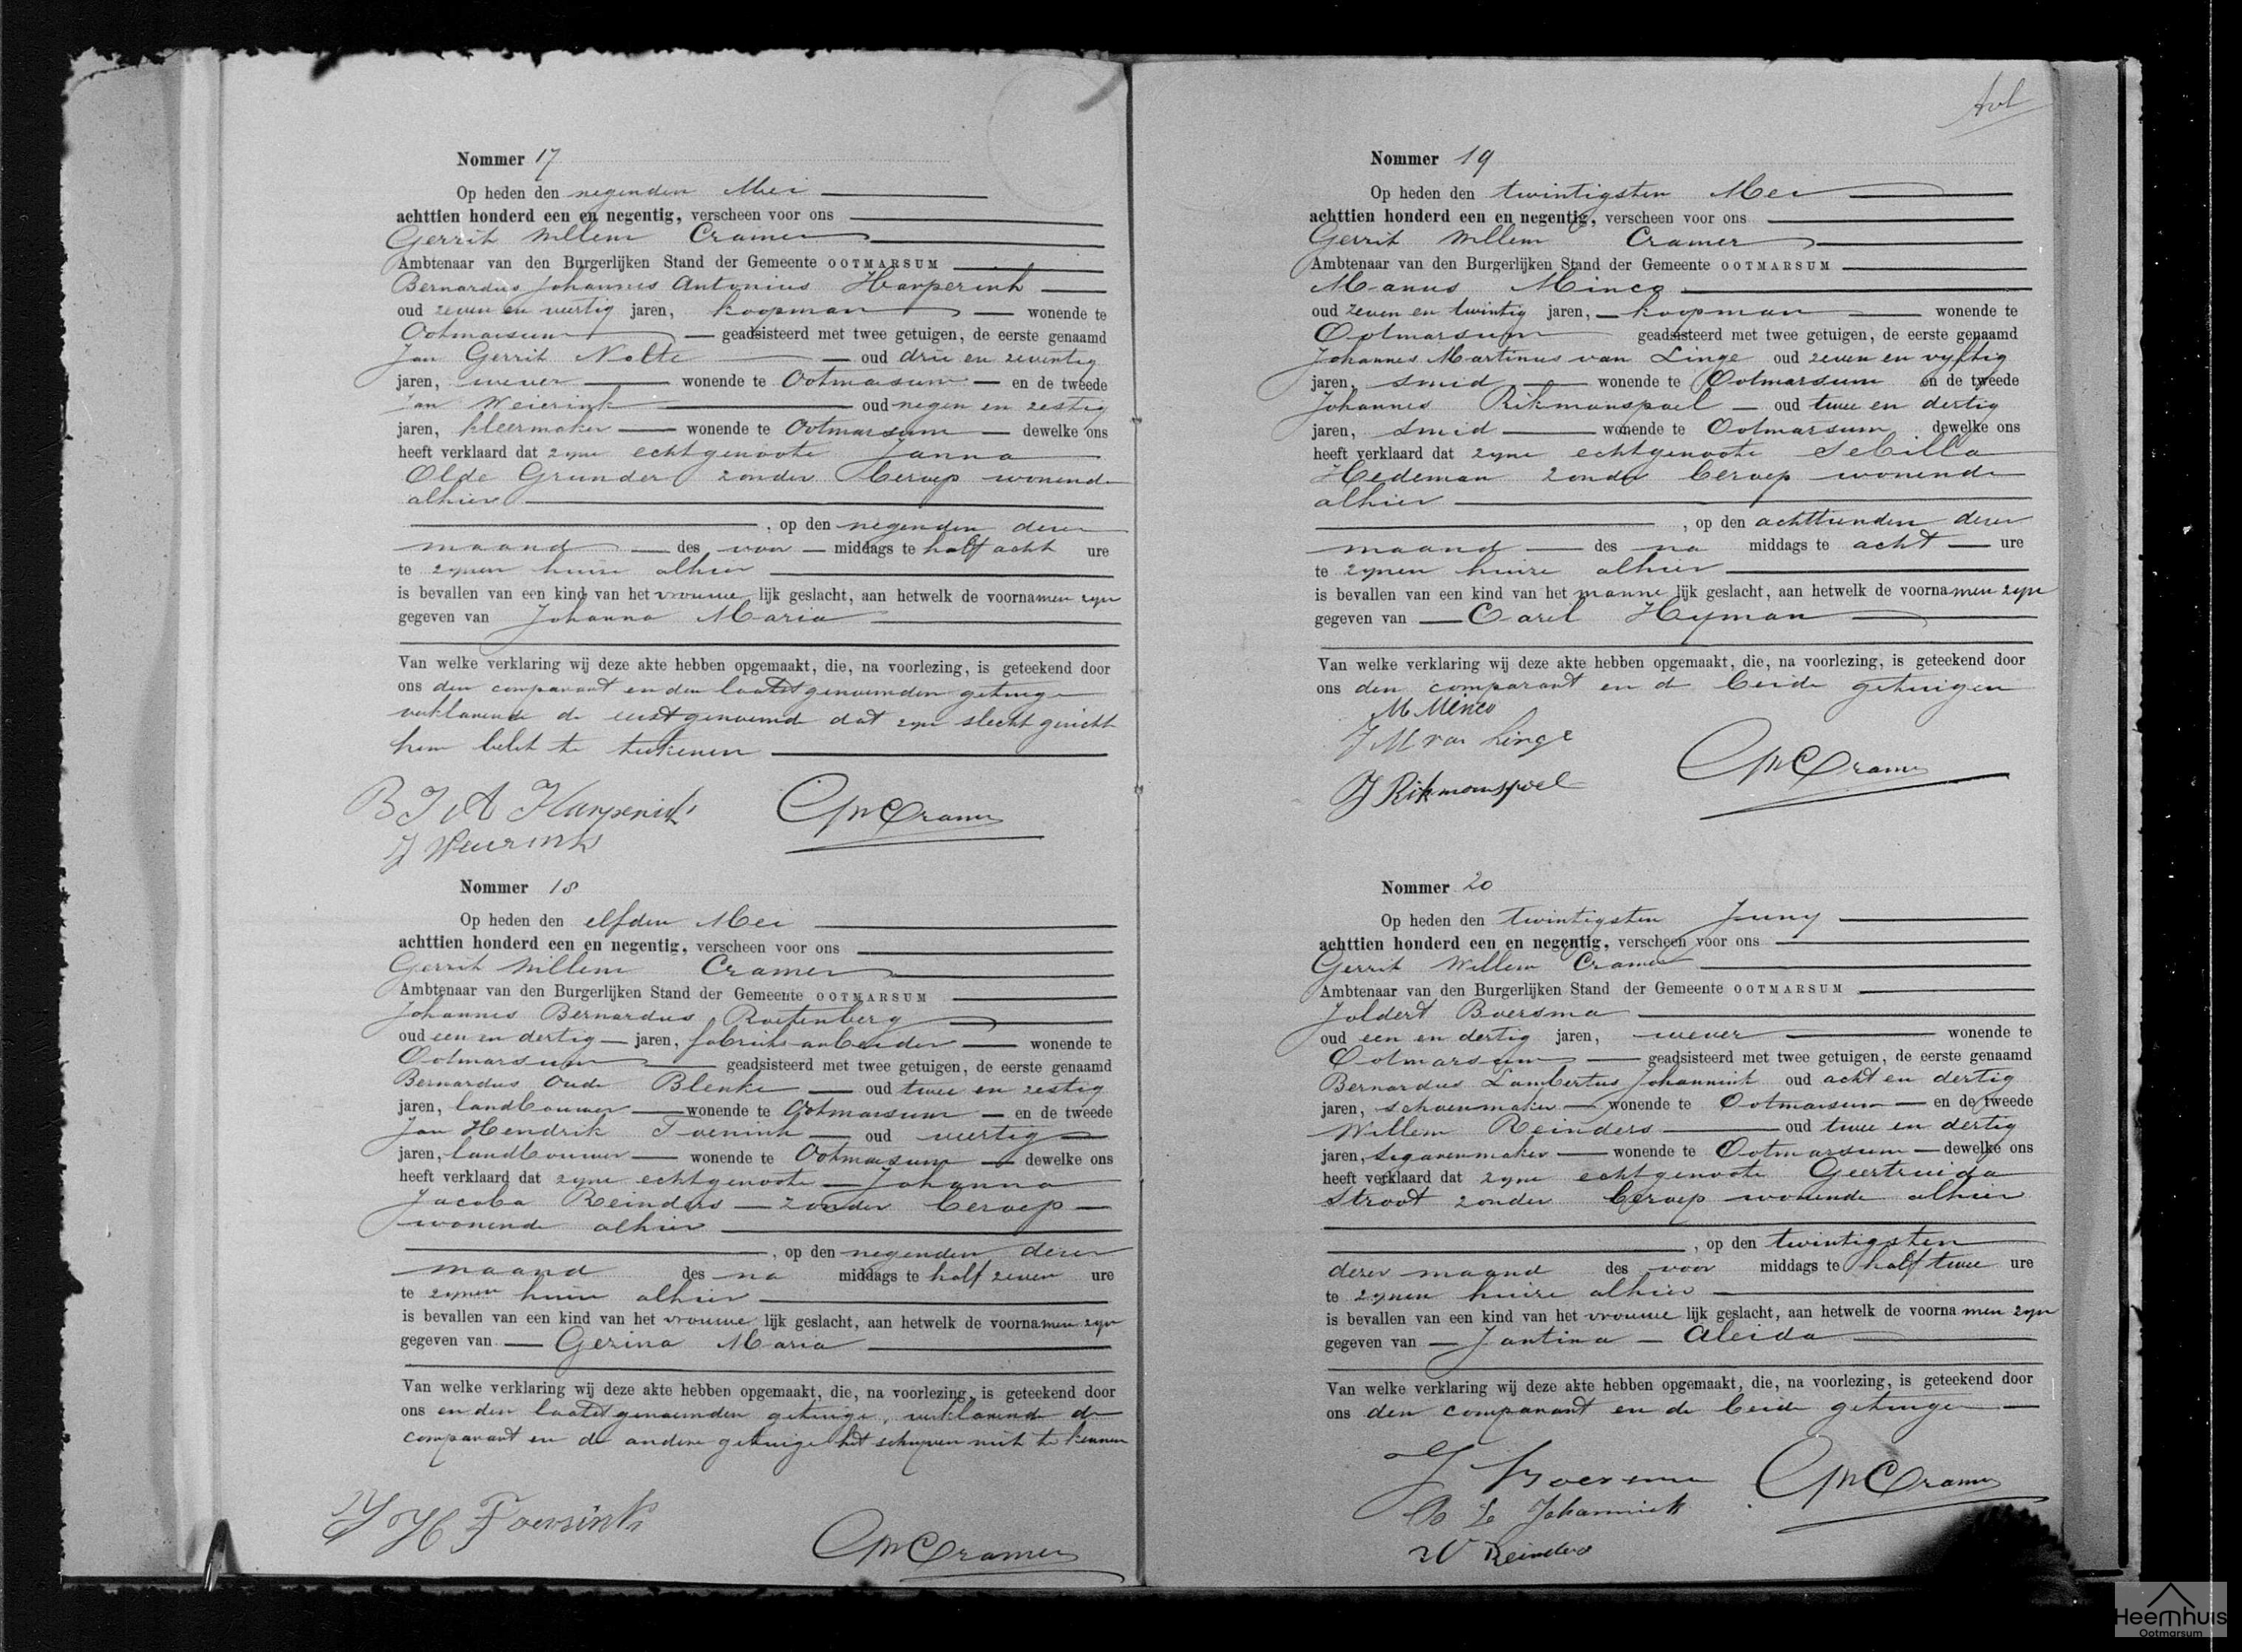 Nommer 17
Op heden den negenden Mei
achttien honderd een en negentig, verscheen voor ons
Gerrit Willem Cramer
Ambtenaar van den Burgerlijken Stand der Gemeente OOTMARSUM
Bernardus Johannes Antonius Harperink
oud zeven en veertig jaren, koopman wonende te
Ootmarsum geadsisteerd met twee getuigen, de eerste genaamd
Jan Gerrit Nolte oud drie en zeventig
jaren, wever wonende te Ootmarsum en de tweede
Jan Weierink oud negen en zestig
jaren, kleermaker wonende te Ootmarsum dewelke ons
heeft verklaard dat zyne echtgenoote Janna
Olde Grunder zonder beroep wonende
alhier
, op den negenden dezer
maand des voor middags te half acht ure
te zynen huize alhier
is bevallen van een kind van het vrouwe lijk geslacht, aan hetwelk de voornamen zyn
gegeven van Johanna Maria
Van welke verklaring wij deze akte hebben opgemaakt, die, na voorlezing, is geteekend door
ons den comparant en den laatstgenoemden getuige
verklarende de eerstgenoemde dat zyn slecht gezicht
hem belet te teekenen
B J A Harperink
J Weierink
GWCramer
Nommer 18
Op heden den elfden Mei
achttien honderd een en negentig, verscheen voor ons
Gerrit Willem Cramer
Ambtenaar van den Burgerlijken Stand der Gemeente OOTMARSUM
Johannes Bernardus
oud een en dertig jaren, fabrieks-arbeider wonende te
Ootmarsum geadsisteerd met twee getuigen, de eerste genaamd
Bernardus Oude Blenke oud twee en zestig
jaren, landbouwer wonende te Ootmarsum en de tweede
Jan Hendrik oud veertig
jaren, landbouwer wonende te Ootmarsum dewelke ons
heeft verklaard dat zyne echtgenoote Johanna
Jacoba Reinders zonder beroep
wonende alhier
, op den negenden dezer
maand des na middags te half zeven ure
te zynen huize alhier
is bevallen van een kind van het vrouwe lijk geslacht, aan hetwelk de voornamen zyn
gegeven van Gezina Maria
Van welke verklaring wij deze akte hebben opgemaakt, die, na voorlezing, is geteekend door
ons en den laatstgenoemden getuige, verklarende de
comparant en de andere getuige het schryven niet te kennen
J H
GWCramer
Nommer 19
Op heden den twintigsten Mei
achttien honderd een en negentig, verscheen voor ons
Gerrit Willem Cramer
Ambtenaar van den Burgerlijken Stand der Gemeente OOTMARSUM
Manus Minco
oud zeven en twintig jaren, koopman wonende te
Ootmarsum geadsisteerd met twee getuigen, de eerste genaamd
Johannes Martinus van Linge oud zeven en vyftig
jaren, smid wonende te Ootmarsum en de tweede
Johannes Rikmanspoel oud twee en dertig
jaren, smid wonende te Ootmarsum dewelke ons
heeft verklaard dat zyne echtgenoote Sebilla
Hedeman zonder beroep wonende
alhier
, op den achttienden dezer
maand des na middags te acht ure
te zynen huize alhier
is bevallen van een kind van het manne lijk geslacht, aan hetwelk de voornamen zyn
gegeven van Carel Hyman
Van welke verklaring wij deze akte hebben opgemaakt, die, na voorlezing, is geteekend door
ons den comparant en de beide getuigen
M Minco
J M van Linge
J Rikmanspoel
GWCramer
Nommer 20
Op heden den twintigsten Juny
achttien honderd een en negentig, verscheen voor ons
Gerrit Willem Cramer
Ambtenaar van den Burgerlijken Stand der Gemeente OOTMARSUM
Joldert Boersma
oud een en dertig jaren, wever wonende te
Ootmarsum geadsisteerd met twee getuigen, de eerste genaamd
Bernardus Lambertus Johannink oud acht en dertig
jaren, schoenmaker wonende te Ootmarsum en de tweede
Willem Reinders oud twee en dertig
jaren, segarenmaker wonende te Ootmarsum dewelke ons
heeft verklaard dat zyne echtgenoote Geertruida
Stroot zonder beroep wonende alhier
, op den twintigsten
dezer maand des voor middags te half twee ure
te zynen huize alhier
is bevallen van een kind van het vrouwe lijk geslacht, aan hetwelk de voornamen zyn
gegeven van Jantina Aleida
Van welke verklaring wij deze akte hebben opgemaakt, die, na voorlezing, is geteekend door
ons den comparant en de beide getuigen
J Boersma
B L Johannink
W Reinders
GWCramer
Heemhuis
Ootmarsum